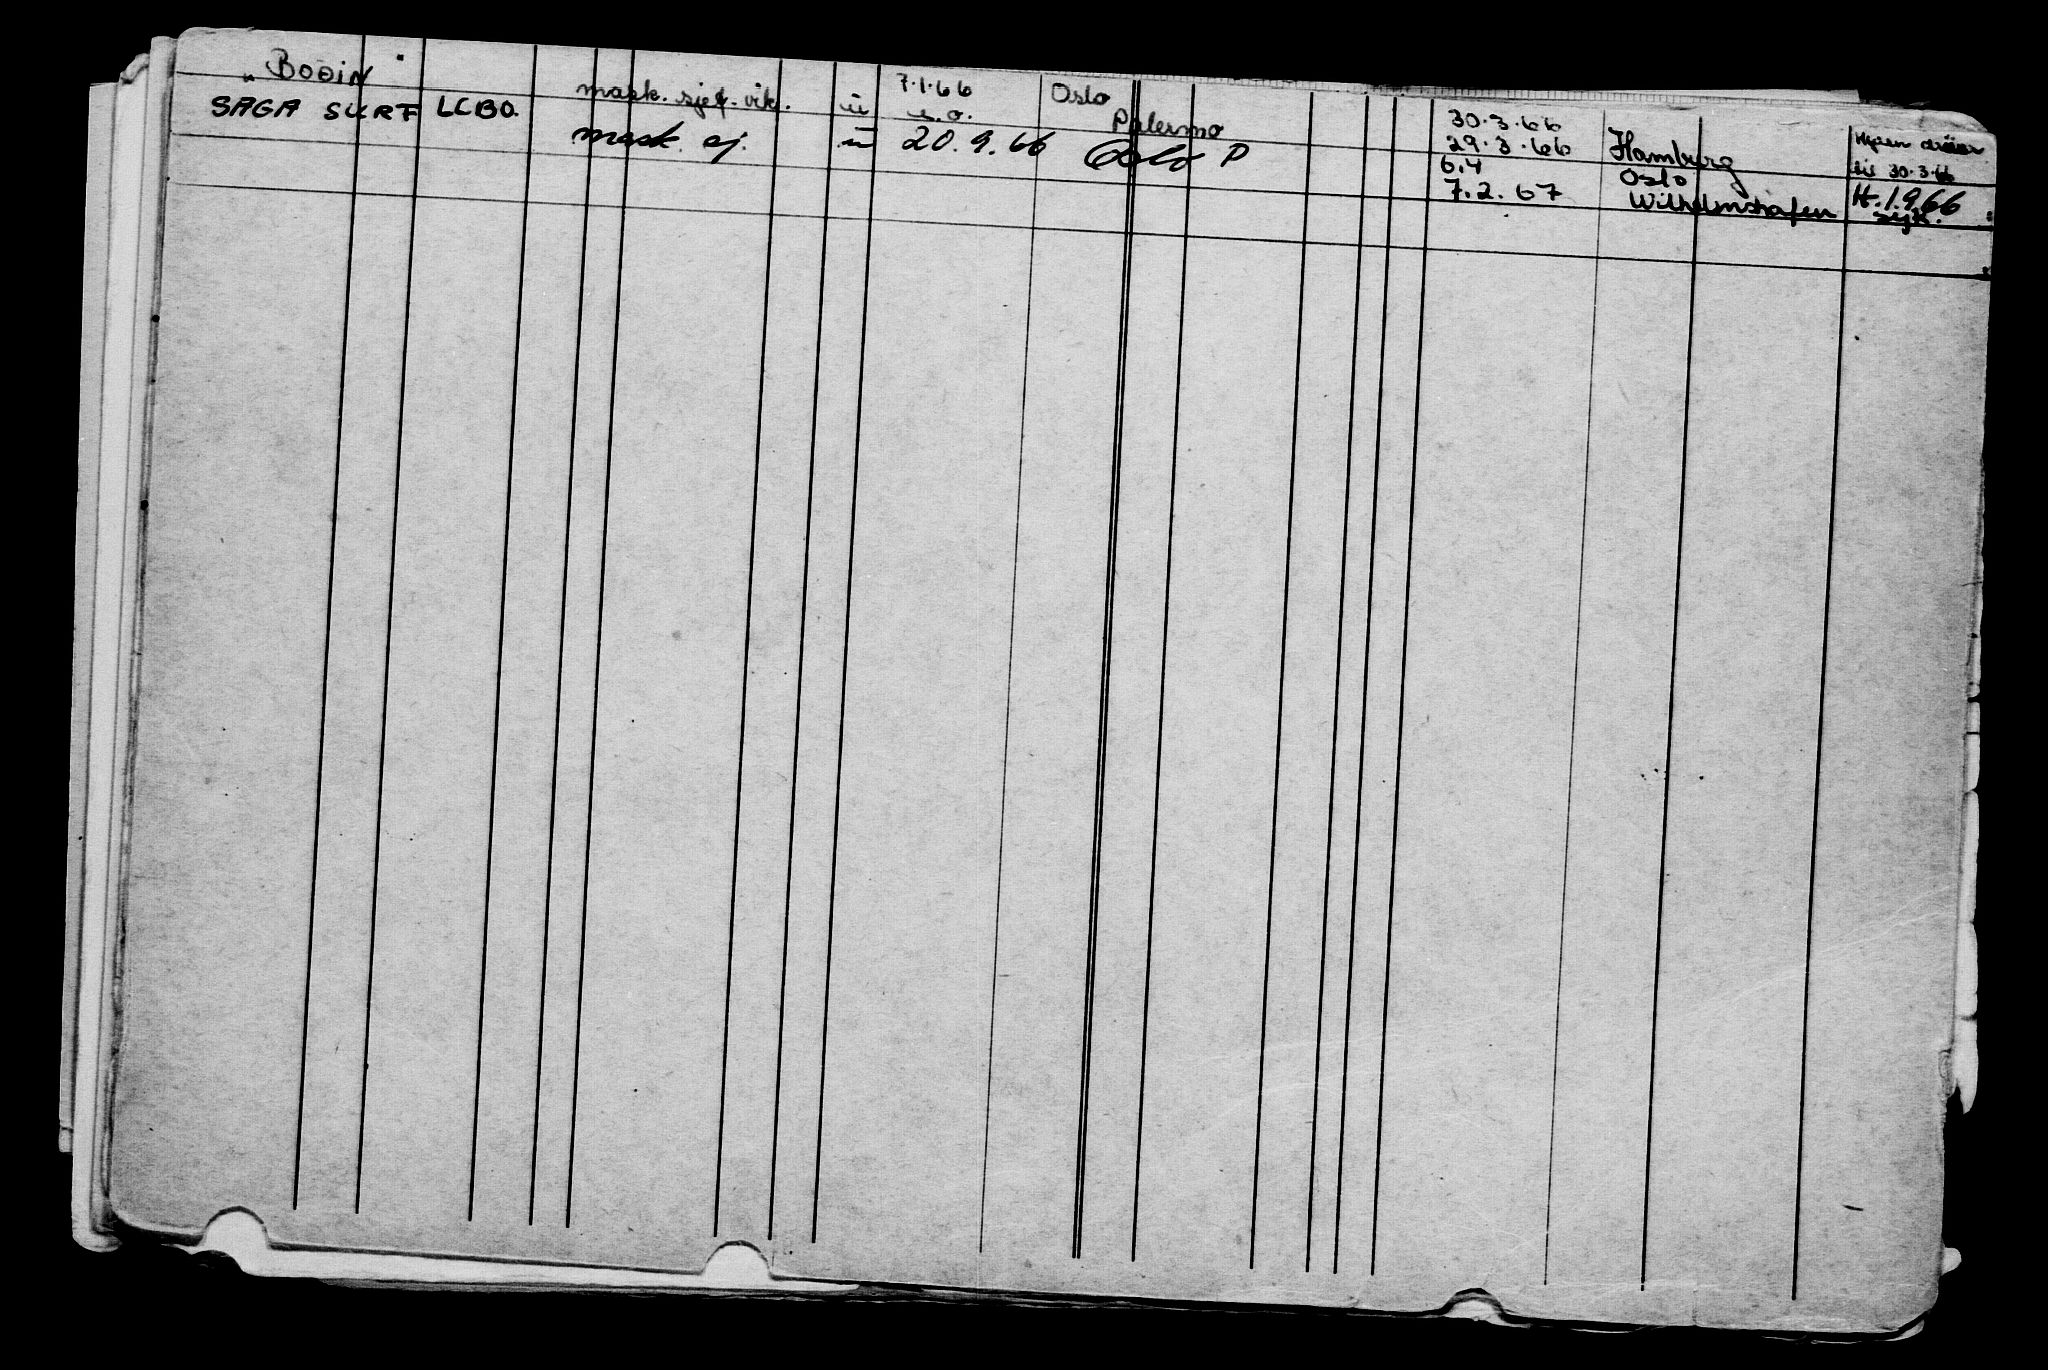 "BODIN" mask. sjef. vik. u 7.1.66 Oslo 30.3.66
s.o. Palermo 29.3.66 Hamburg til 30.3.66
SAGA SURF LCBO. mask. sj. u 20.9.66 Oslo P 6.4 Oslo H.1.9.66
7.2.67 Wilhelmshafen syk.